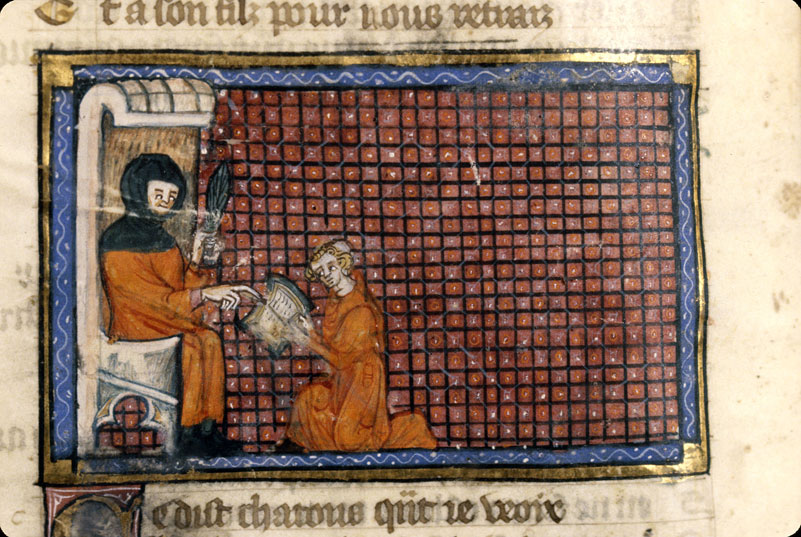 Et a son filz pour nous retrarz
Ce dist chatons quit ie vroix